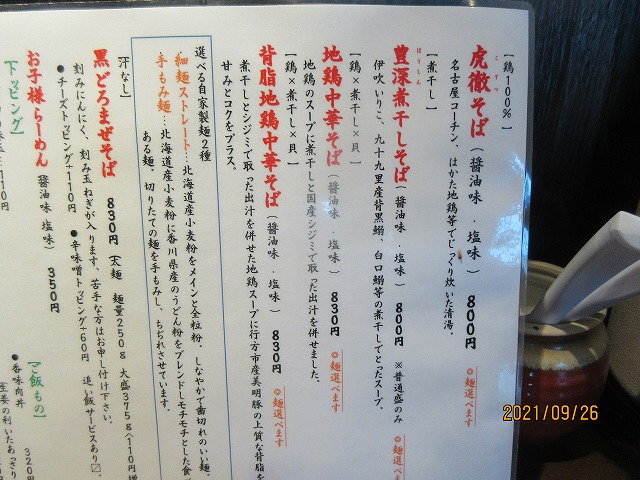 【鶏100%】
こてつ
虎徹そば（醤油味・塩味）800円 ◎麺選べます
名古屋コーチン、はかた地鶏等でじっくり炊いた清湯。
【煮干し】
ほうしん
豊深煮干しそば（醤油味・塩味）800円 ※普通盛のみ ◎麺選べます
伊吹いりこ、九十九里産背黒鰯、白口鰯等の煮干しでとったスープ。
【鶏×煮干し×貝】
地鶏中華そば（醤油味・塩味）830円 ◎麺選べます
地鶏のスープに煮干しと国産シジミで取った出汁を併せました。
【鶏×煮干し×貝】
背脂地鶏中華そば（醤油味・塩味）830円 ◎麺選べます
煮干しとシジミで取った出汁を併せた地鶏スープに行方市産美明豚の上質な背脂を
甘みとコクをプラス。
選べる自家製麺2種
細麺ストレート…北海道産小麦粉をメインと全粒粉。しなやかで歯切れのいい麺。
手もみ麺…北海道産小麦粉に香川県産のうどん粉をブレンドしモチモチとした食
ある麺。切りたての麺を手もみし、ちぢれさせています。
【汁なし】
黒どろまぜそば 830円（太麺 麺量250g 大盛375g＋110円増
刻みにんにく、刻み玉ねぎが入ります、苦手な方はお申し付け下さい。
●チーズトッピング+110円 ●辛味噌トッピング+60円 追い飯サービスあり〼。
お子様らーめん（醤油味 塩味）350円
【トッピング】
110円
【ご飯もの】
●香味肉丼 320円
生姜の利いたあっさり
2021/09/26